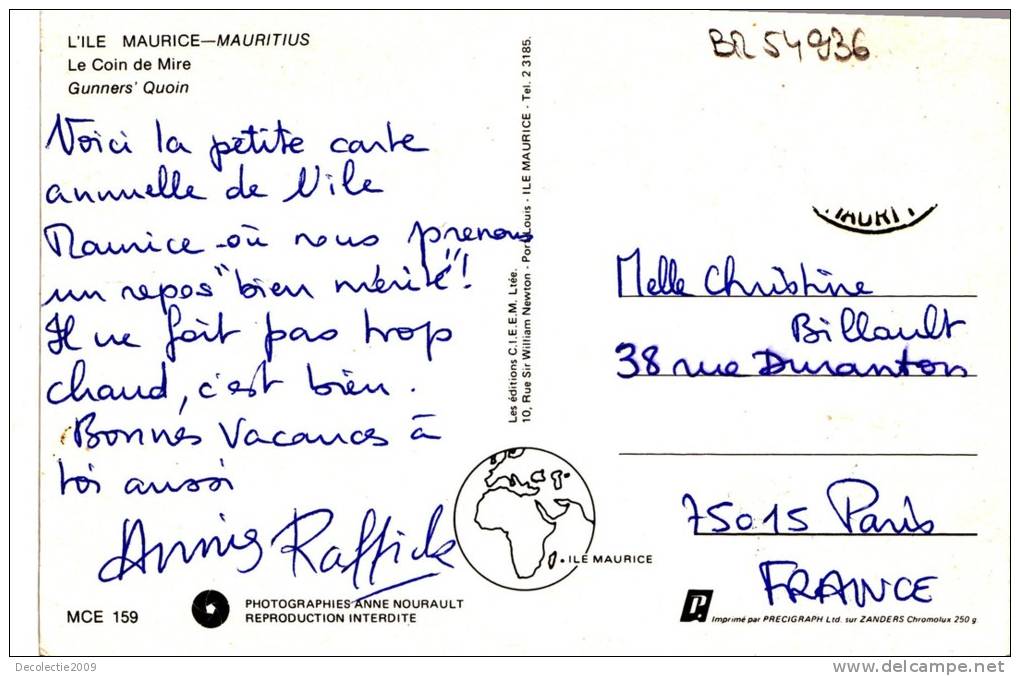 L'ILE MAURICE—MAURITIUS
Le Coin de Mire
Gunners' Quoin
BR 54936
Voici la petite carte
annuelle de l'île
Maurice où nous prenons
un repos "bien mérité"!
Il ne fait pas trop
chaud, c'est bien.
Bonnes Vacances à
toi aussi
Annie Raffick
MCE 159
PHOTOGRAPHIES ANNE NOURAULT
REPRODUCTION INTERDITE
Les éditions C.I.E.E.M. Ltée.
10, Rue Sir William Newton - Port-Louis - ILE MAURICE - Tel. 2 3185.
ILE MAURICE
MAURIT
Melle Christine
Billault
38 rue Duranton
75015 Paris
FRANCE
Imprimé par PRECIGRAPH Ltd. sur ZANDERS Chromolux 250 g
Decolectie2009
http://www.delcampe.net